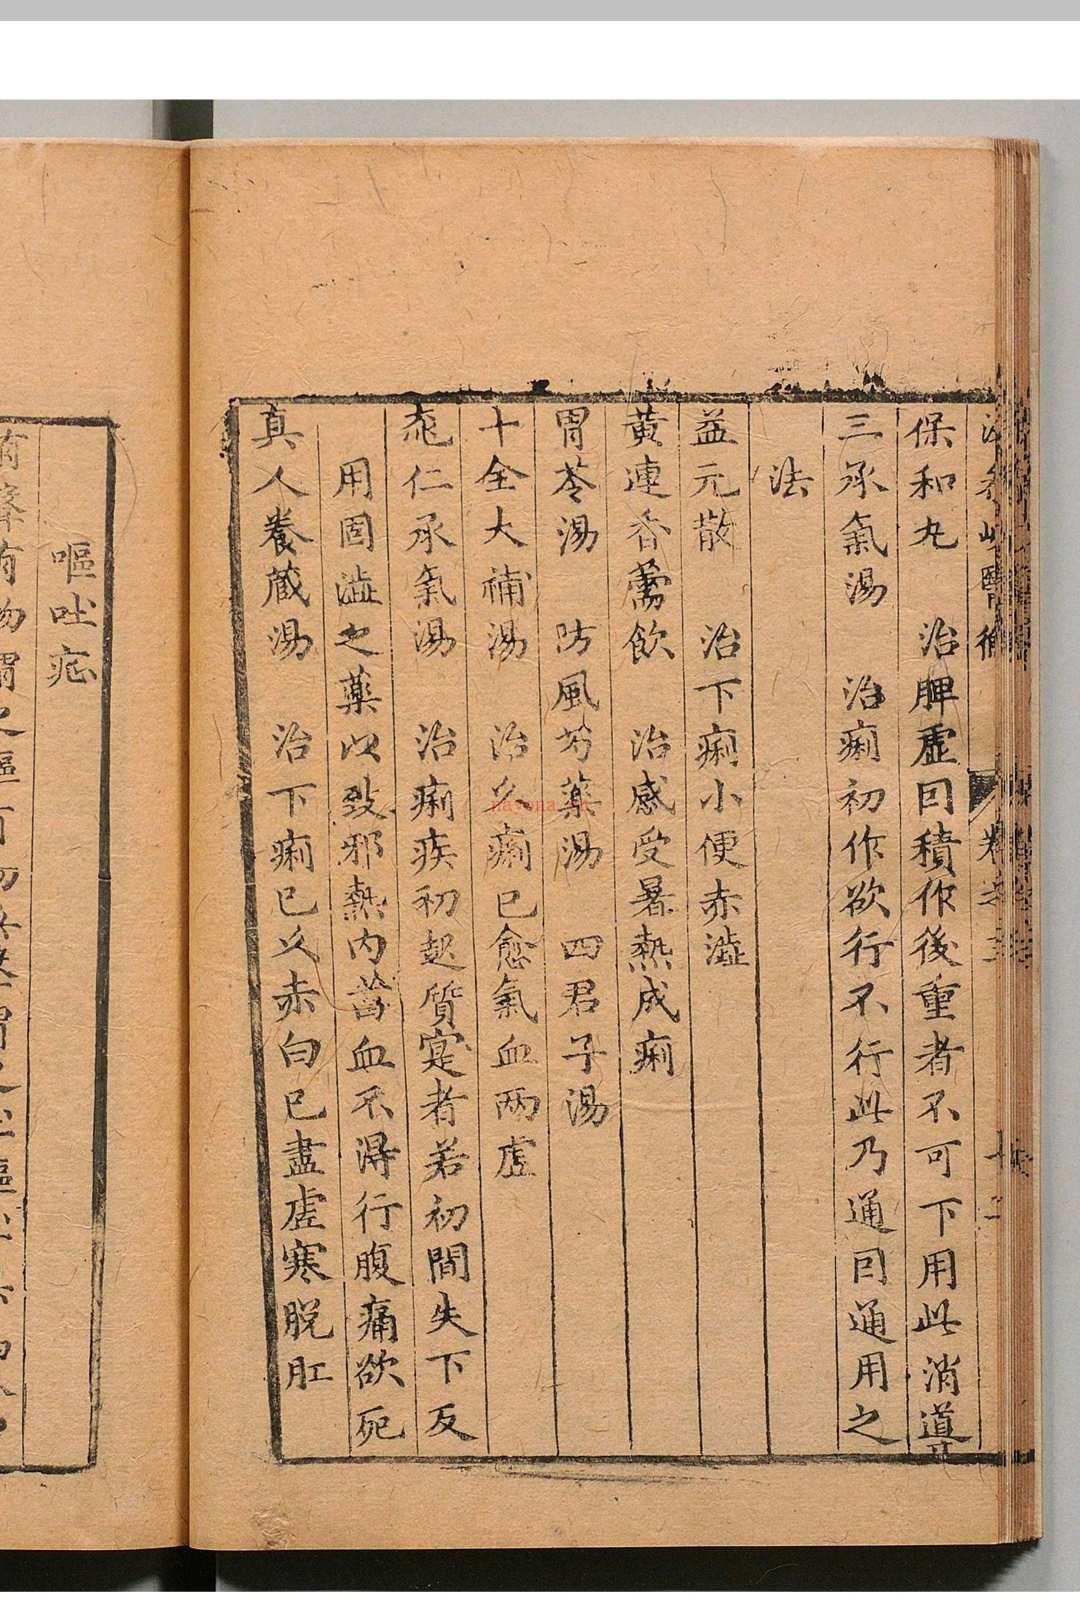 保和丸　治脾虚囙積作後重者不可下用此消導
三承氣湯　治痢初作欲行不行此乃通囙通用之
法
益元散　治下痢小便赤澁
黄連香薷飲　治感受暑熱成痢
胃苓湯　防風芍藥湯　四君子湯
十全大補湯　治久痢已愈氣血兩虚
桃仁承氣湯　治痢疾初起質寔者若初間失下反
用固澁之藥以致邪熱内畜血不得行腹痛欲死
真人養藏湯　治下痢已久赤白已盡虚寒脱肛
嘔吐症
nayona.cn